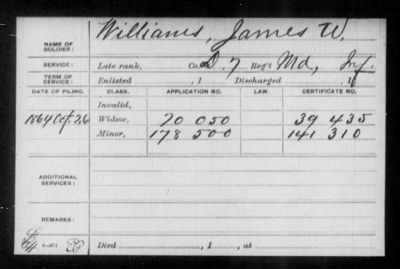 Williams, James W.
NAME OF SOLDIER:
SERVICE: Late rank, Co. D. 7 Reg't Md, Inf.
TERM OF SERVICE: Enlisted , 1 Discharged , 1
DATE OF FILING. CLASS. APPLICATION NO. LAW. CERTIFICATE NO.
Invalid,
1864 Oct. 26 Widow, 70 050 39 435
Minor, 178 500 141 310
ADDITIONAL SERVICES:
REMARKS:
Died , 1 , at